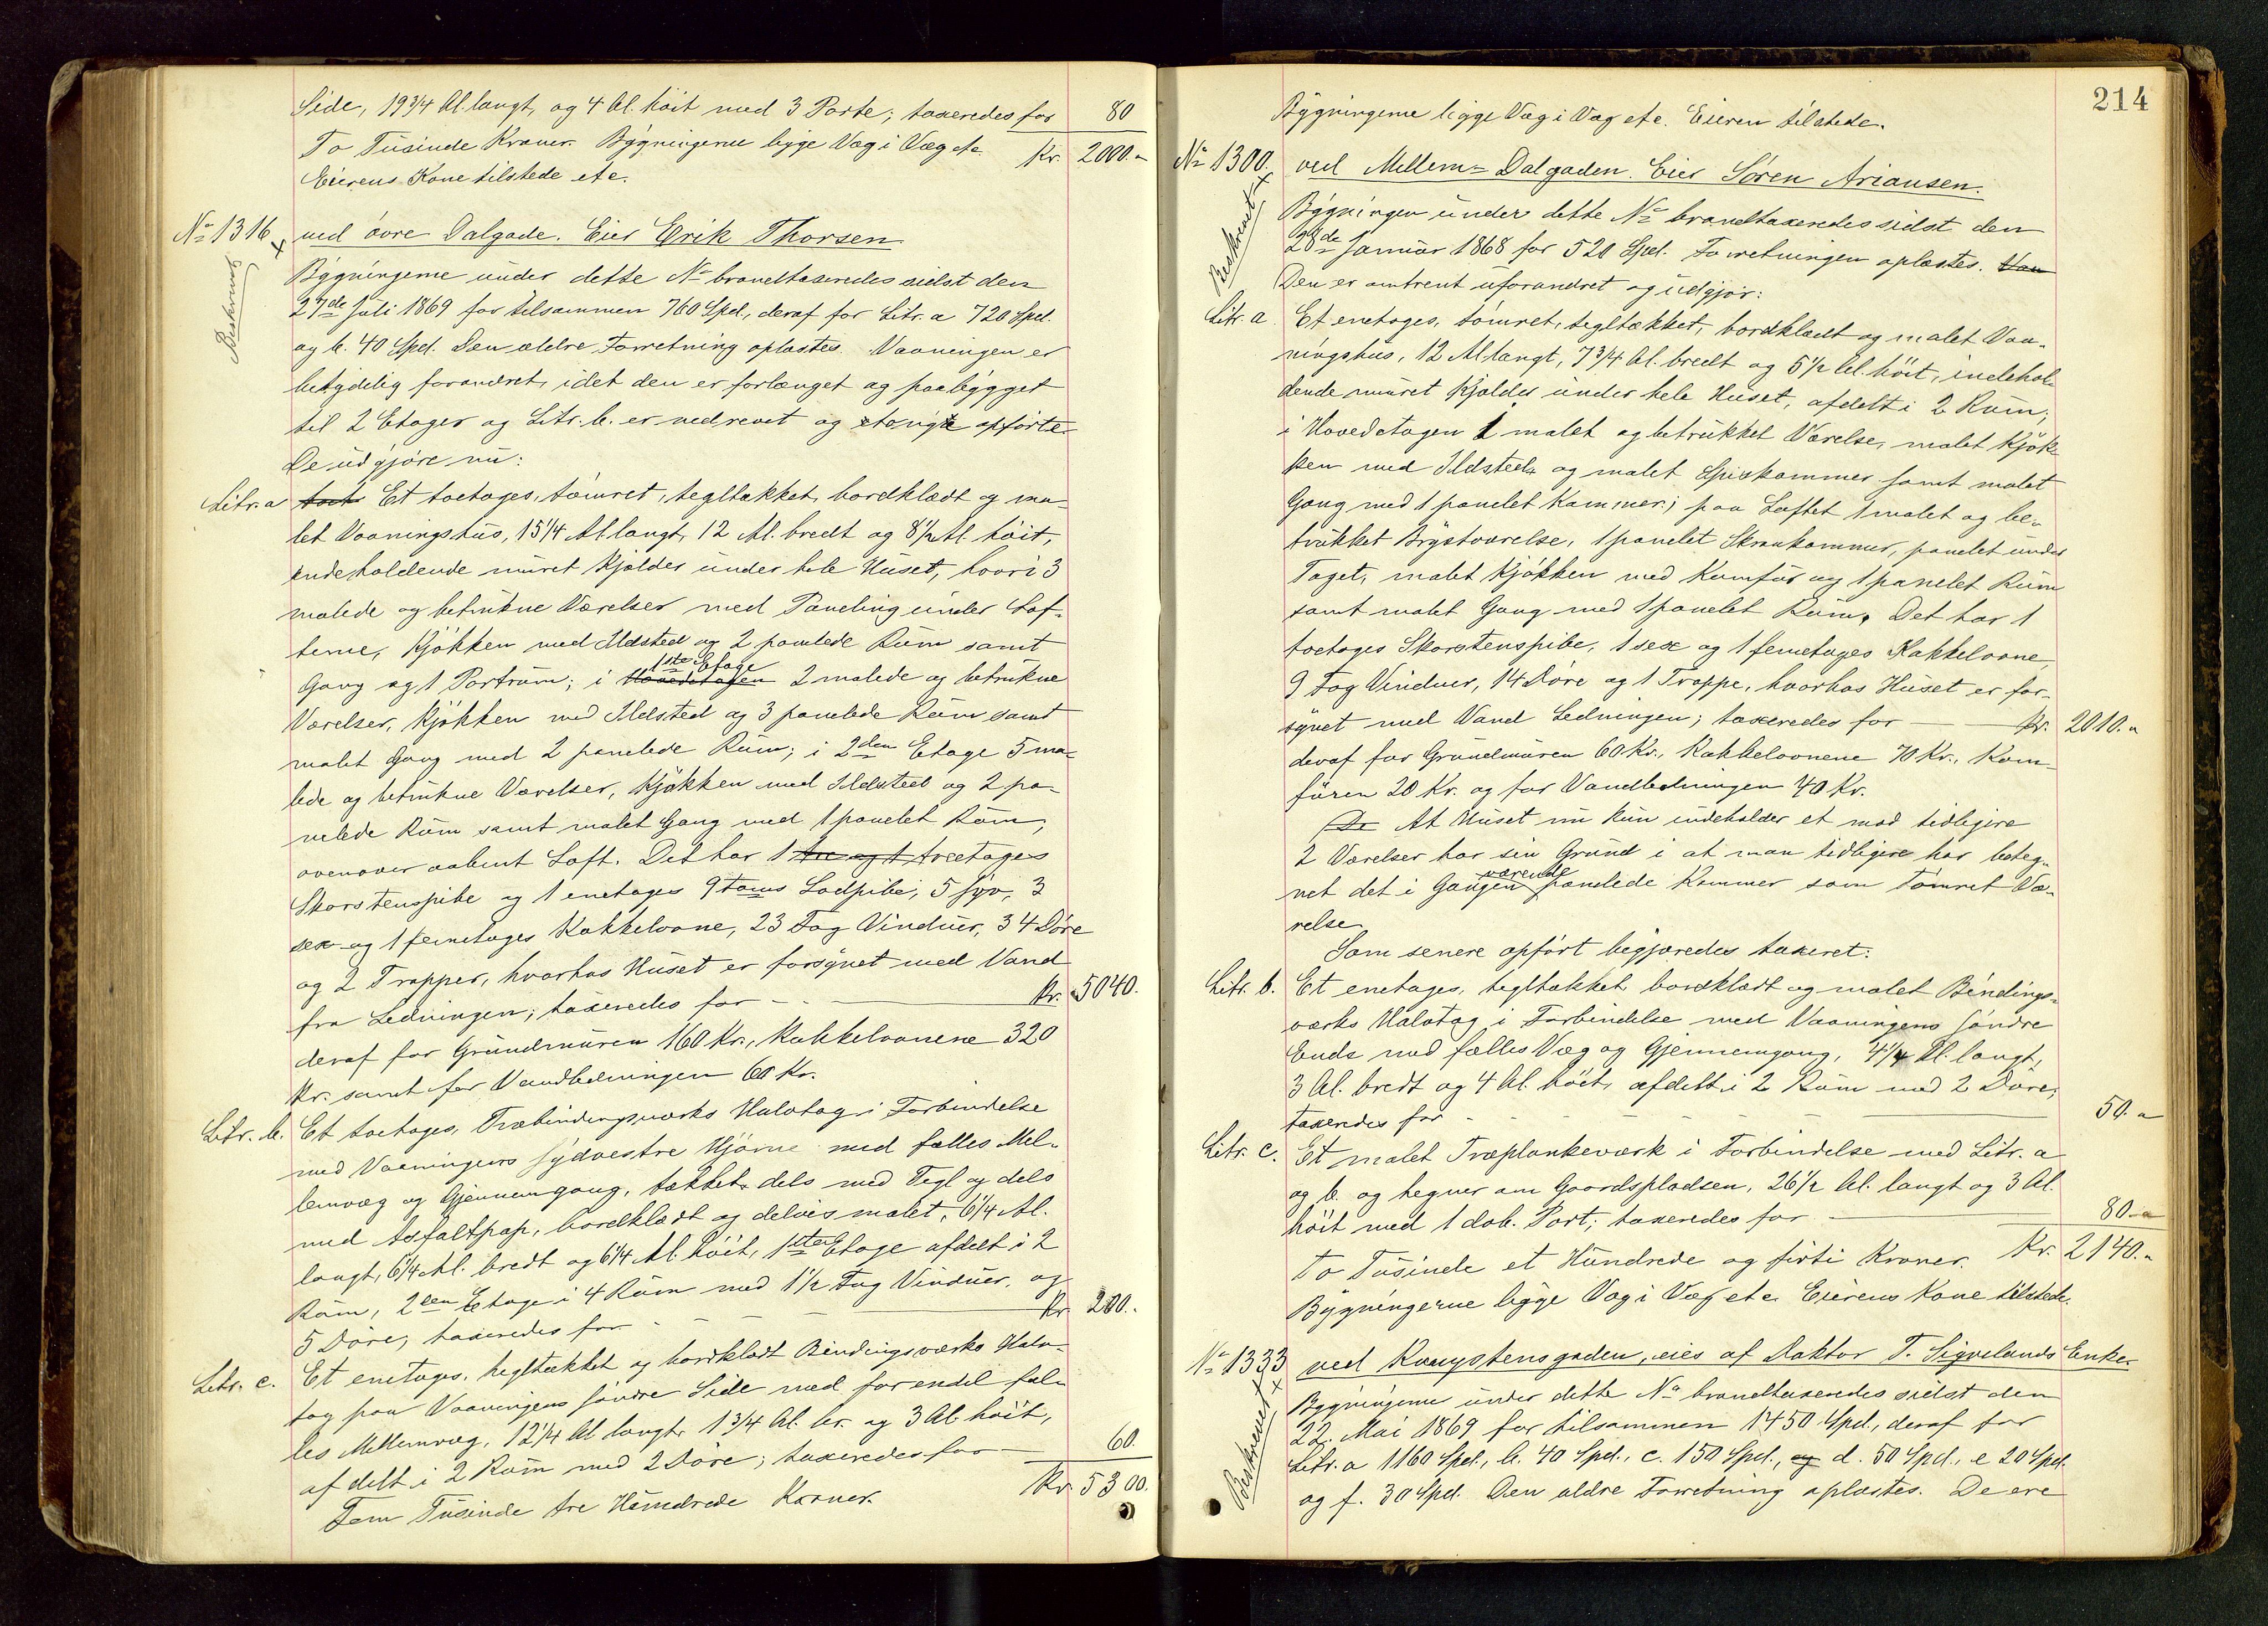 Side, 19 3/4 Al. langt, og 4 Al. høit med 3 Porte; taxeredes for 80
To Tusinde Kroner. Bygningerne ligge Væg i Væg etc. Kr. 2000.-
Eierens Kone tilstede etc.
No 1316 ved øvre Dalgade. Eier Erik Thorsen
Beskrevet
Bygningerne under dette No brandtaxeredes sidst den
27de Juli 1869 for tilsammen 760 Spd., deraf for Litr. a 720 Spd.
og b. 40 Spd. Den ældre Forretning oplæstes. Vaaningen er
betydelig forandret, idet den er forlænget og paabygget
til 2 Etager og Litr. b. er nedrevet og opførte.
De udgjøre nu:
Litr. a Et toetages, tømret, tegltækket, bordklædt og ma-
let Vaaningshus, 15 1/4 Al. langt, 12 Al. bredt og 8 1/2 Al. høit,
indeholdende muret Kjælder under hele Huset, hvori 3
malede og betrukne Værelser med Paneling under Lof-
terne, Kjøkken med Ildsted og 2 panelede Rum samt
Gang og 1 Portrum; i Hovedetagen 1ste Etage 2 malede og betrukne
Værelser, Kjøkken med Ildsted og 3 panelede Rum samt
malet Gang med 2 panelede Rum; i 2den Etage 5 ma-
lede og betrukne Værelser, Kjøkken med Ildsted og 2 pa-
nelede Rum samt malet Gang med 1 panelet Rum,
ovenover aabent Loft. Det har 1 tre og 1 treetages
Skorstenspibe og 1 enetages 9 toms Lodpibe, 5 syv, 3
sex og 1 femetages Kakkelovne, 23 Fag Vinduer, 34 Døre
og 2 Trapper, hvorhos Huset er forsynet med Vand
fra Ledningen; taxeredes for - - Kr. 5040.
deraf for Grundmuren 160 Kr., Kakkelovnene 320
Kr. samt for Vandledningen 60 Kr.
Litr. b. Et toetages, Træbindingsværks Halvtag i Forbindelse
med Vaaningens sydvestre Hjørne med fælles Mel-
lemvæg og Gjennemgang, tækket dels med Tegl og dels
med Asfaltpap, bordklædt og delvis malet, 6 1/4 Al.
langt, 6 1/4 Al. bredt og 6 1/4 Al. høit, 1ste Etage afdelt i 2
Rum, 2den Etage i 4 Rum med 1 1/2 Fag Vinduer, og
5 Døre; taxeredes for - - - Kr. 200.
Litr. c. Et enetages, tegltækket og bordklædt Bindingsværks Halv-
tag paa Vaaningens søndre Side med for endel fæl-
les Mellemvæg, 12 1/4 Al langt, 1 3/4 Al. br. og 3 Al høit,
afdelt i 2 Rum med 2 Døre; taxeredes for 60.
Fem Tusinde tre Hundrede Kroner. Kr. 5300.
214
Bygningerne ligge Væg i Væg etc. Eieren tilstede.
No 1300. ved Mellem-Dalgaden. Eier Søren Ariansen.
Beskrevet
Bygningen under dette No brandtaxeredes sidst den
28de Januar 1868 for 520 Spd. Forretningen oplæstes. Vaa
Den er omtrent uforandret og udgjør:
Litr. a Et enetages, tømret, tegltækket, bordklædt og malet Vaa-
ningshus, 12 Al langt, 7 3/4 Al. bredt og 5 1/2 Al. høit, indehol-
dende muret Kjælder under hele Huset, afdelt i 2 Rum,
i Hovedetagen 1 malet og betrukket Værelse, malet Kjøk-
ken med Ildsted og malet Spiskammer samt malet
Gang med 1 panelet Kammer; paa Loftet 1 malet og be-
trukket Brystværelse, 1 panelet Skraakammer, panelet under
Taget, malet Kjøkken med Komfur og 1 panelet Rum
samt malet Gang med 1 panelet Rum. Det har 1
toetages Skorstenspibe, 1 sex og 1 femetages Kakkelovne,
9 Fag Vinduer, 14 Døre og 1 Trappe, hvorhos Huset er for-
synet med Vand Ledningen; taxeredes for - Kr. 2010.-
deraf for Grundmuren 60 Kr., Kakkelovnene 70 Kr., Kom-
furen 20 Kr. og for Vandledningen 40 Kr.
De At Huset nu kun indeholder et mod tidligere
2 Værelser har sin Grund i at man tidligere har beteg-
net det i Gangen værende panelede Kammer som tømret Væ-
relse.
Som senere opført begjæredes taxeret:
Litr. b. Et enetages, tegltækket, bordklædt og malet Bindings-
værks Halvtag i Forbindelse med Vaaningens søndre
Ende med fælles Væg og Gjennemgang, 4 1/4 Al. langt,
3 Al. bredt og 4 Al. høit, afdelt i 2 Rum med 2 Døre;
taxeredes for - 50.-
Litr. c. Et malet Træplankeværk i Forbindelse med Litr. a
og b. og hegner om Gaardspladsen, 26 1/2 Al. langt og 3 Al.
høit med 1 dob. Port; taxeredes for - 80.-
To Tusinde et Hundrede og firti Kroner. Kr. 2140.-
Bygningerne ligge Væg i Væg etc. Eierens Kone tilstede.
No 1333 ved Kongstensgaden, eies af Doktor T. Sigvelands Enke.
Beskrevet
Bygningerne under dette No brandtaxeredes sidst den
22. Mai 1869 for tilsammen 1450 Spd., deraf for
Litr. a 1160 Spd., b. 40 Spd., c. 150 Spd., og d. 50 Spd., e 20 Spd.
og f. 30 Spd. Den ældre Forretning oplæstes. De ere